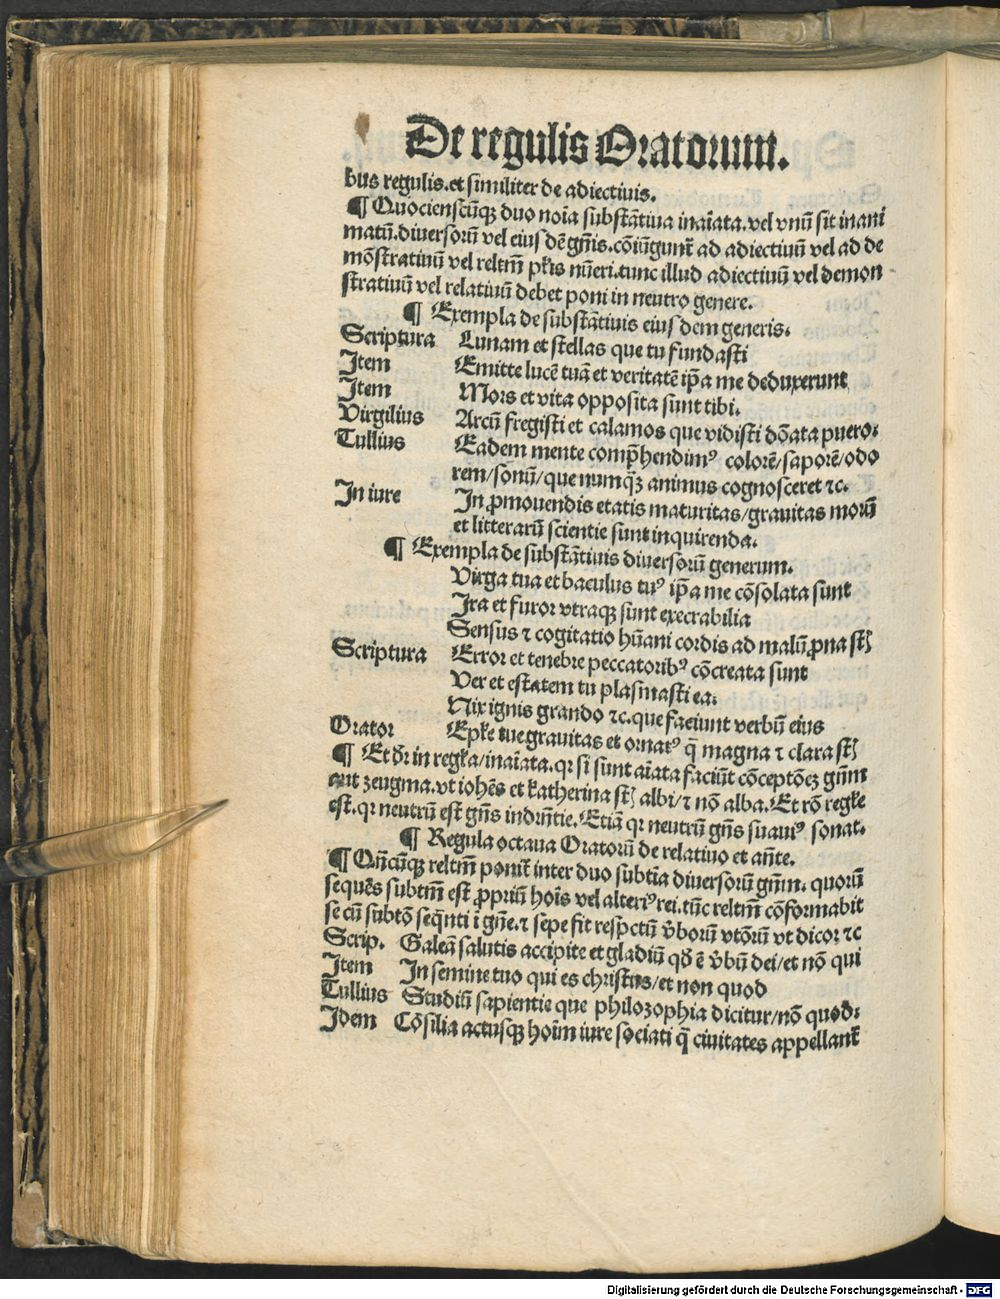 De regulis Oratorum.
bus regulis.et similiter de adiectiuis.
¶ Quocienscũqꝫ duo noĩa substãtiua inaĩata.vel vnũ sit inani
matũ.diuersorũ vel eiusdẽ gñis.cõiũgunt̃ ad adiectiuũ vel ad de
mõstratiuũ vel reltm̃ pl̃is nũeri.tunc illud adiectiuũ vel demon
stratiuũ vel relatiuũ debet poni in neutro genere.
¶ Exempla de substãtiuis eiusdem generis.
Scriptura Lunam et stellas que tu fundasti
Item Emitte lucẽ tuã et veritatẽ ip̃a me deduxerunt
Item Mors et vita opposita sunt tibi.
Virgilius Arcũ fregisti et calamos que vidisti dõata puero.
Tullius Eadem mente comp̃hendimꝰ colorẽ/saporẽ/odo
rem/sonũ/que numqꝫ animus cognosceret ⁊c.
In iure In ꝓmouendis etatis maturitas/grauitas morũ
et litterarũ scientie sunt inquirenda.
¶ Exempla de substãtiuis diuersorũ generum.
Virga tua et baculus tuꝰ ip̃a me cõsolata sunt
Ira et furor vtraqꝫ sunt execrabilia
Sensus ⁊ cogitatio hũani cordis ad malũ ꝓna st̃
Scriptura Error et tenebre peccatoribꝰ cõcreata sunt
Ver et estatem tu plasmasti ea.
Nix ignis grando ⁊c.que faciunt verbũ eius
Orator Ep̃le tue grauitas et ornatꝰ q̃ magna ⁊ clara st̃
¶ Et dr̃ in regl̃a/inaĩata.qr si sunt aĩata faciũt cõceptõeꝫ gñm
aut zeugma.vt iohẽs et katherina st̃ albi/⁊ nõ alba.Et rõ regl̃e
est.qr neutrũ est gñs indr̃ntie.Etiã qr neutrũ gñs suauiꝰ sonat.
¶ Regula octaua Oratorũ de relatiuo et añte.
¶ Qñcũqꝫ reltm̃ ponit̃ inter duo subtĩa diuersorũ gñm. quorũ
sequẽs subtm̃ est ꝓpriũ hoĩs vel alteriꝰ rei.tũc reltm̃ cõformabit
se cũ subtõ seq̃nti ĩ gñe.⁊ sepe fit respctũ v̾borũ vtõrũ vt dicor ⁊c
Scrip. Galeã salutis accipite et gladiũ qđ ẽ v̾bũ dei/et nõ qui
Item In semine tuo qui es christus/et non quod
Tullius Studiũ sapientie que philozophia dicitur/nõ quod.
Idem Cõsilia actusqꝫ hoĩm iure sociati q̃ ciuitates appellant̃
Digitalisierung gefördert durch die Deutsche Forschungsgemeinschaft - DFG